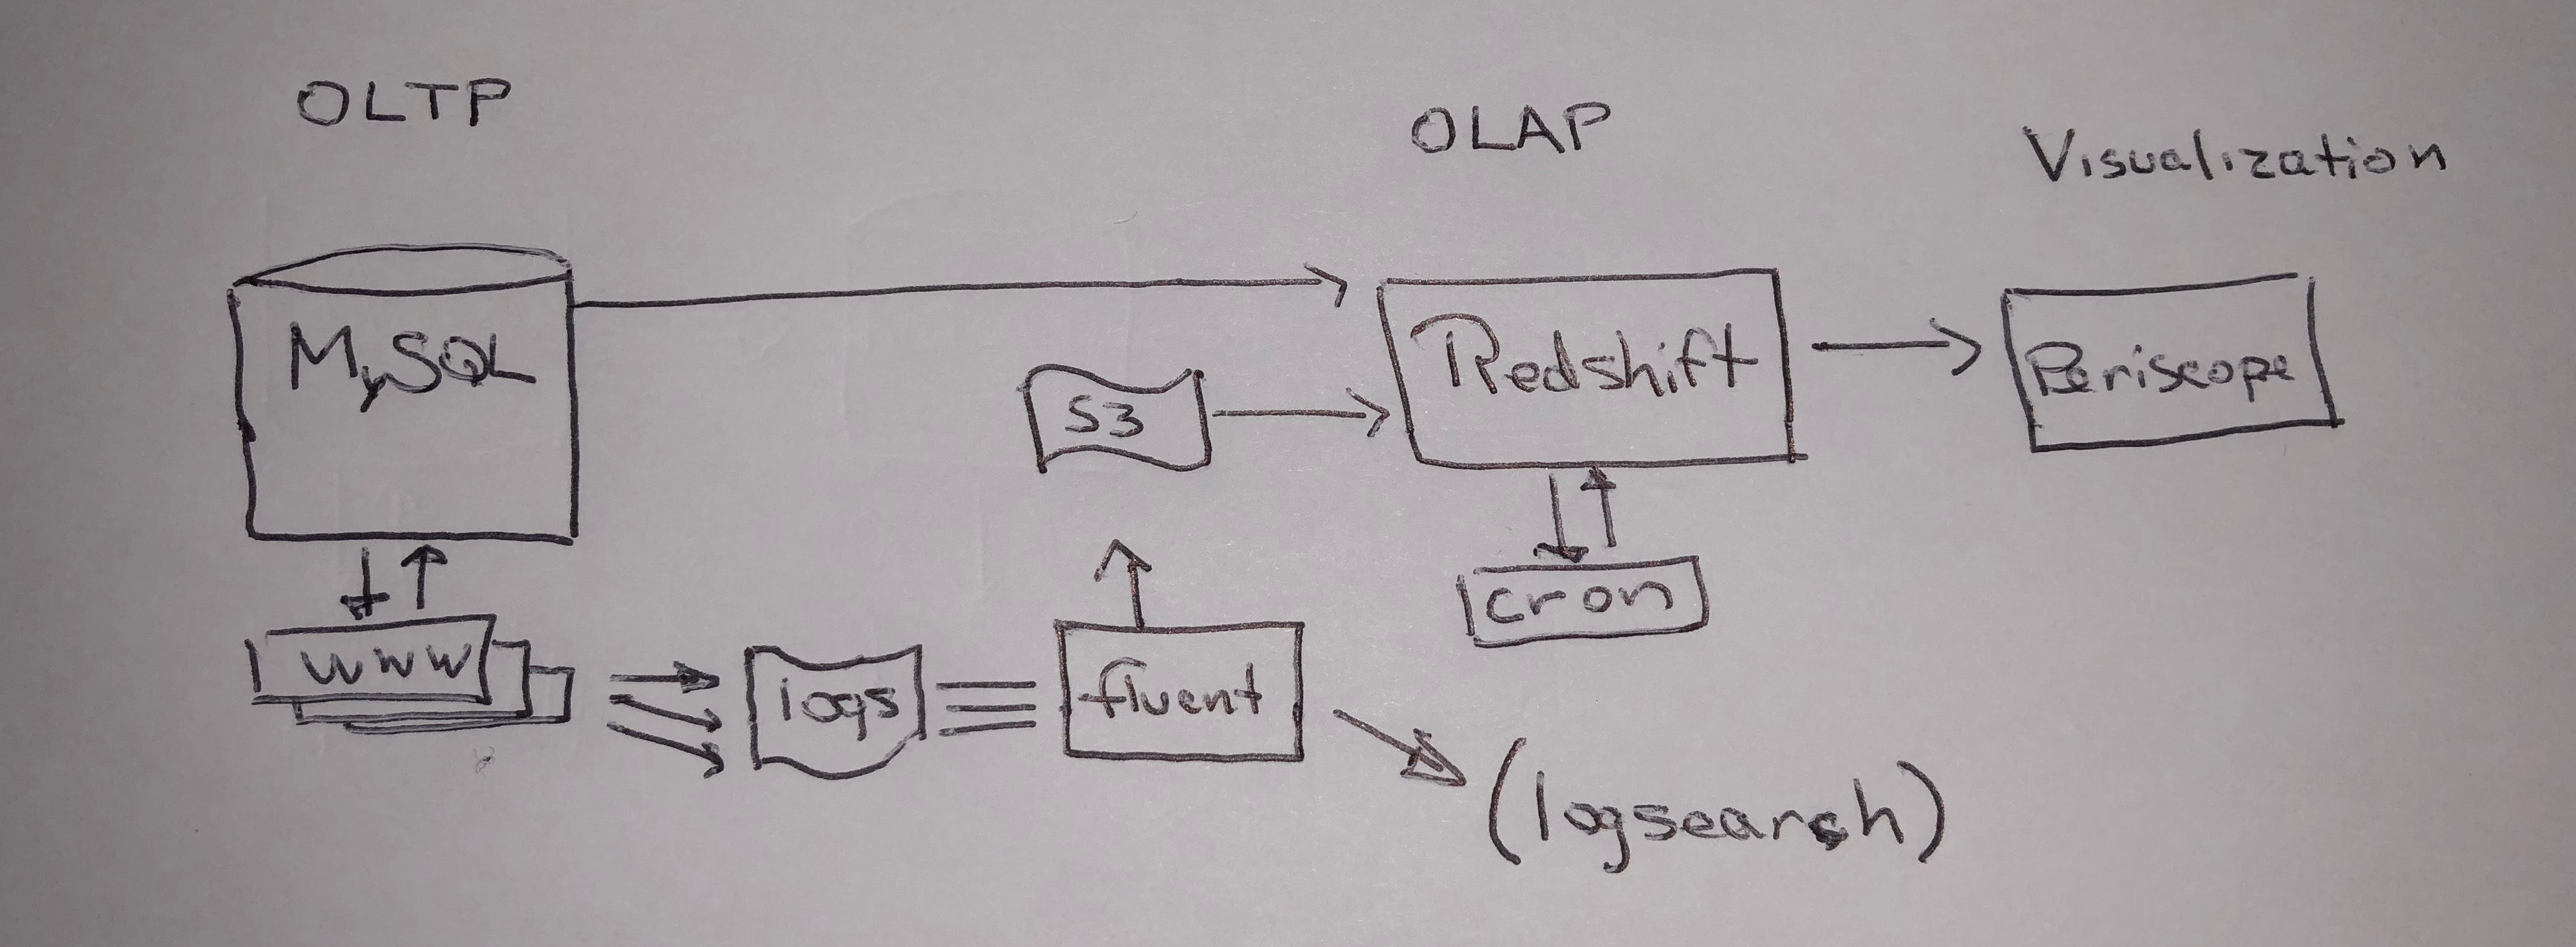 OLTP
OLAP
Visualization
MySQL
Redshift
Periscope
S3
cron
www
logs
fluent
(logsearch)